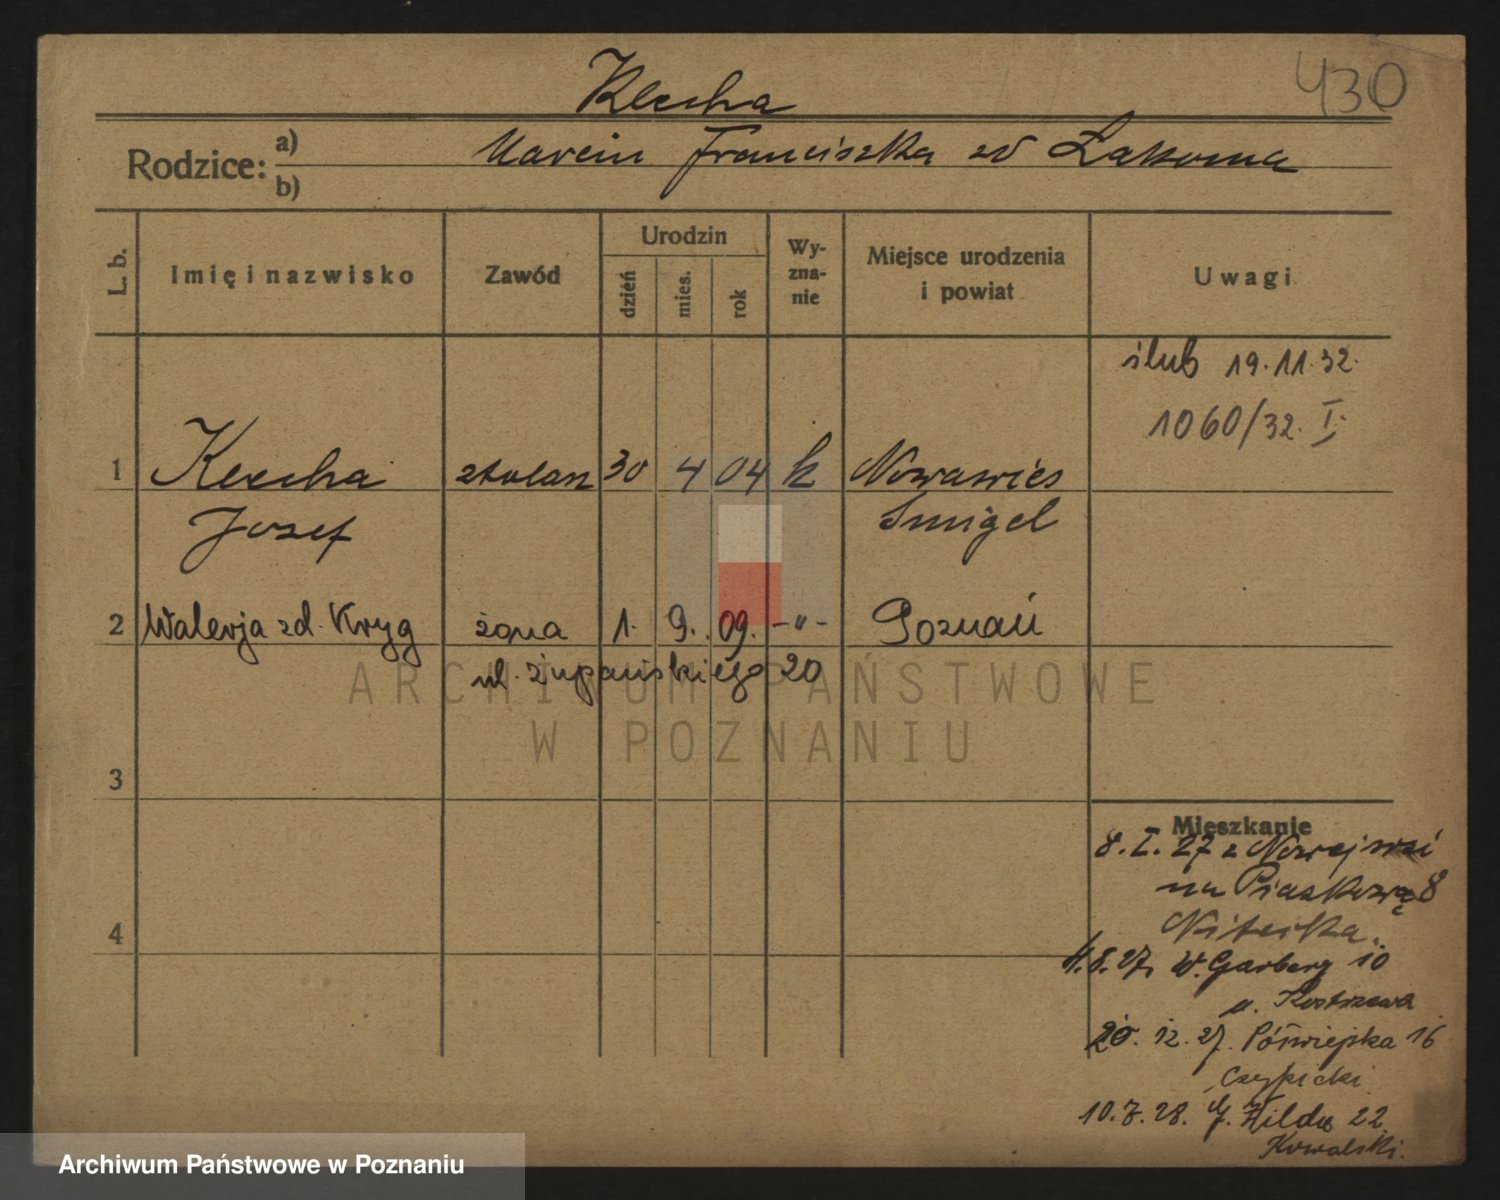 Klecha
430
Rodzice: a) Marcin Franciszka zd Łakoma
b)
L. b.
Imię i nazwisko
Zawód
Urodzin
dzień
mies.
rok
Wy-
zna-
nie
Miejsce urodzenia
i powiat
Uwagi
ślub 19.11.32.
1060/32. I.
1 Klecha stolarz 30 4 04 k Nowawieś
Józef Smigel
2 Walerja zd. Kryg żona 1. 9. 09. -"- Poznań
ul. Żupańskiego 20
3
4
Mieszkanie
8. I. 27 z Nowejwsi
na Piaskową 8
4.8.27, W. Garbary 10
u. Kostrzewa
20. 12. 27. Półwiejska 16
Czypicki
10.7.28. G. Wilda 22
Kowalski.
ARCHIWUM PAŃSTWOWE
W POZNANIU
Archiwum Państwowe w Poznaniu